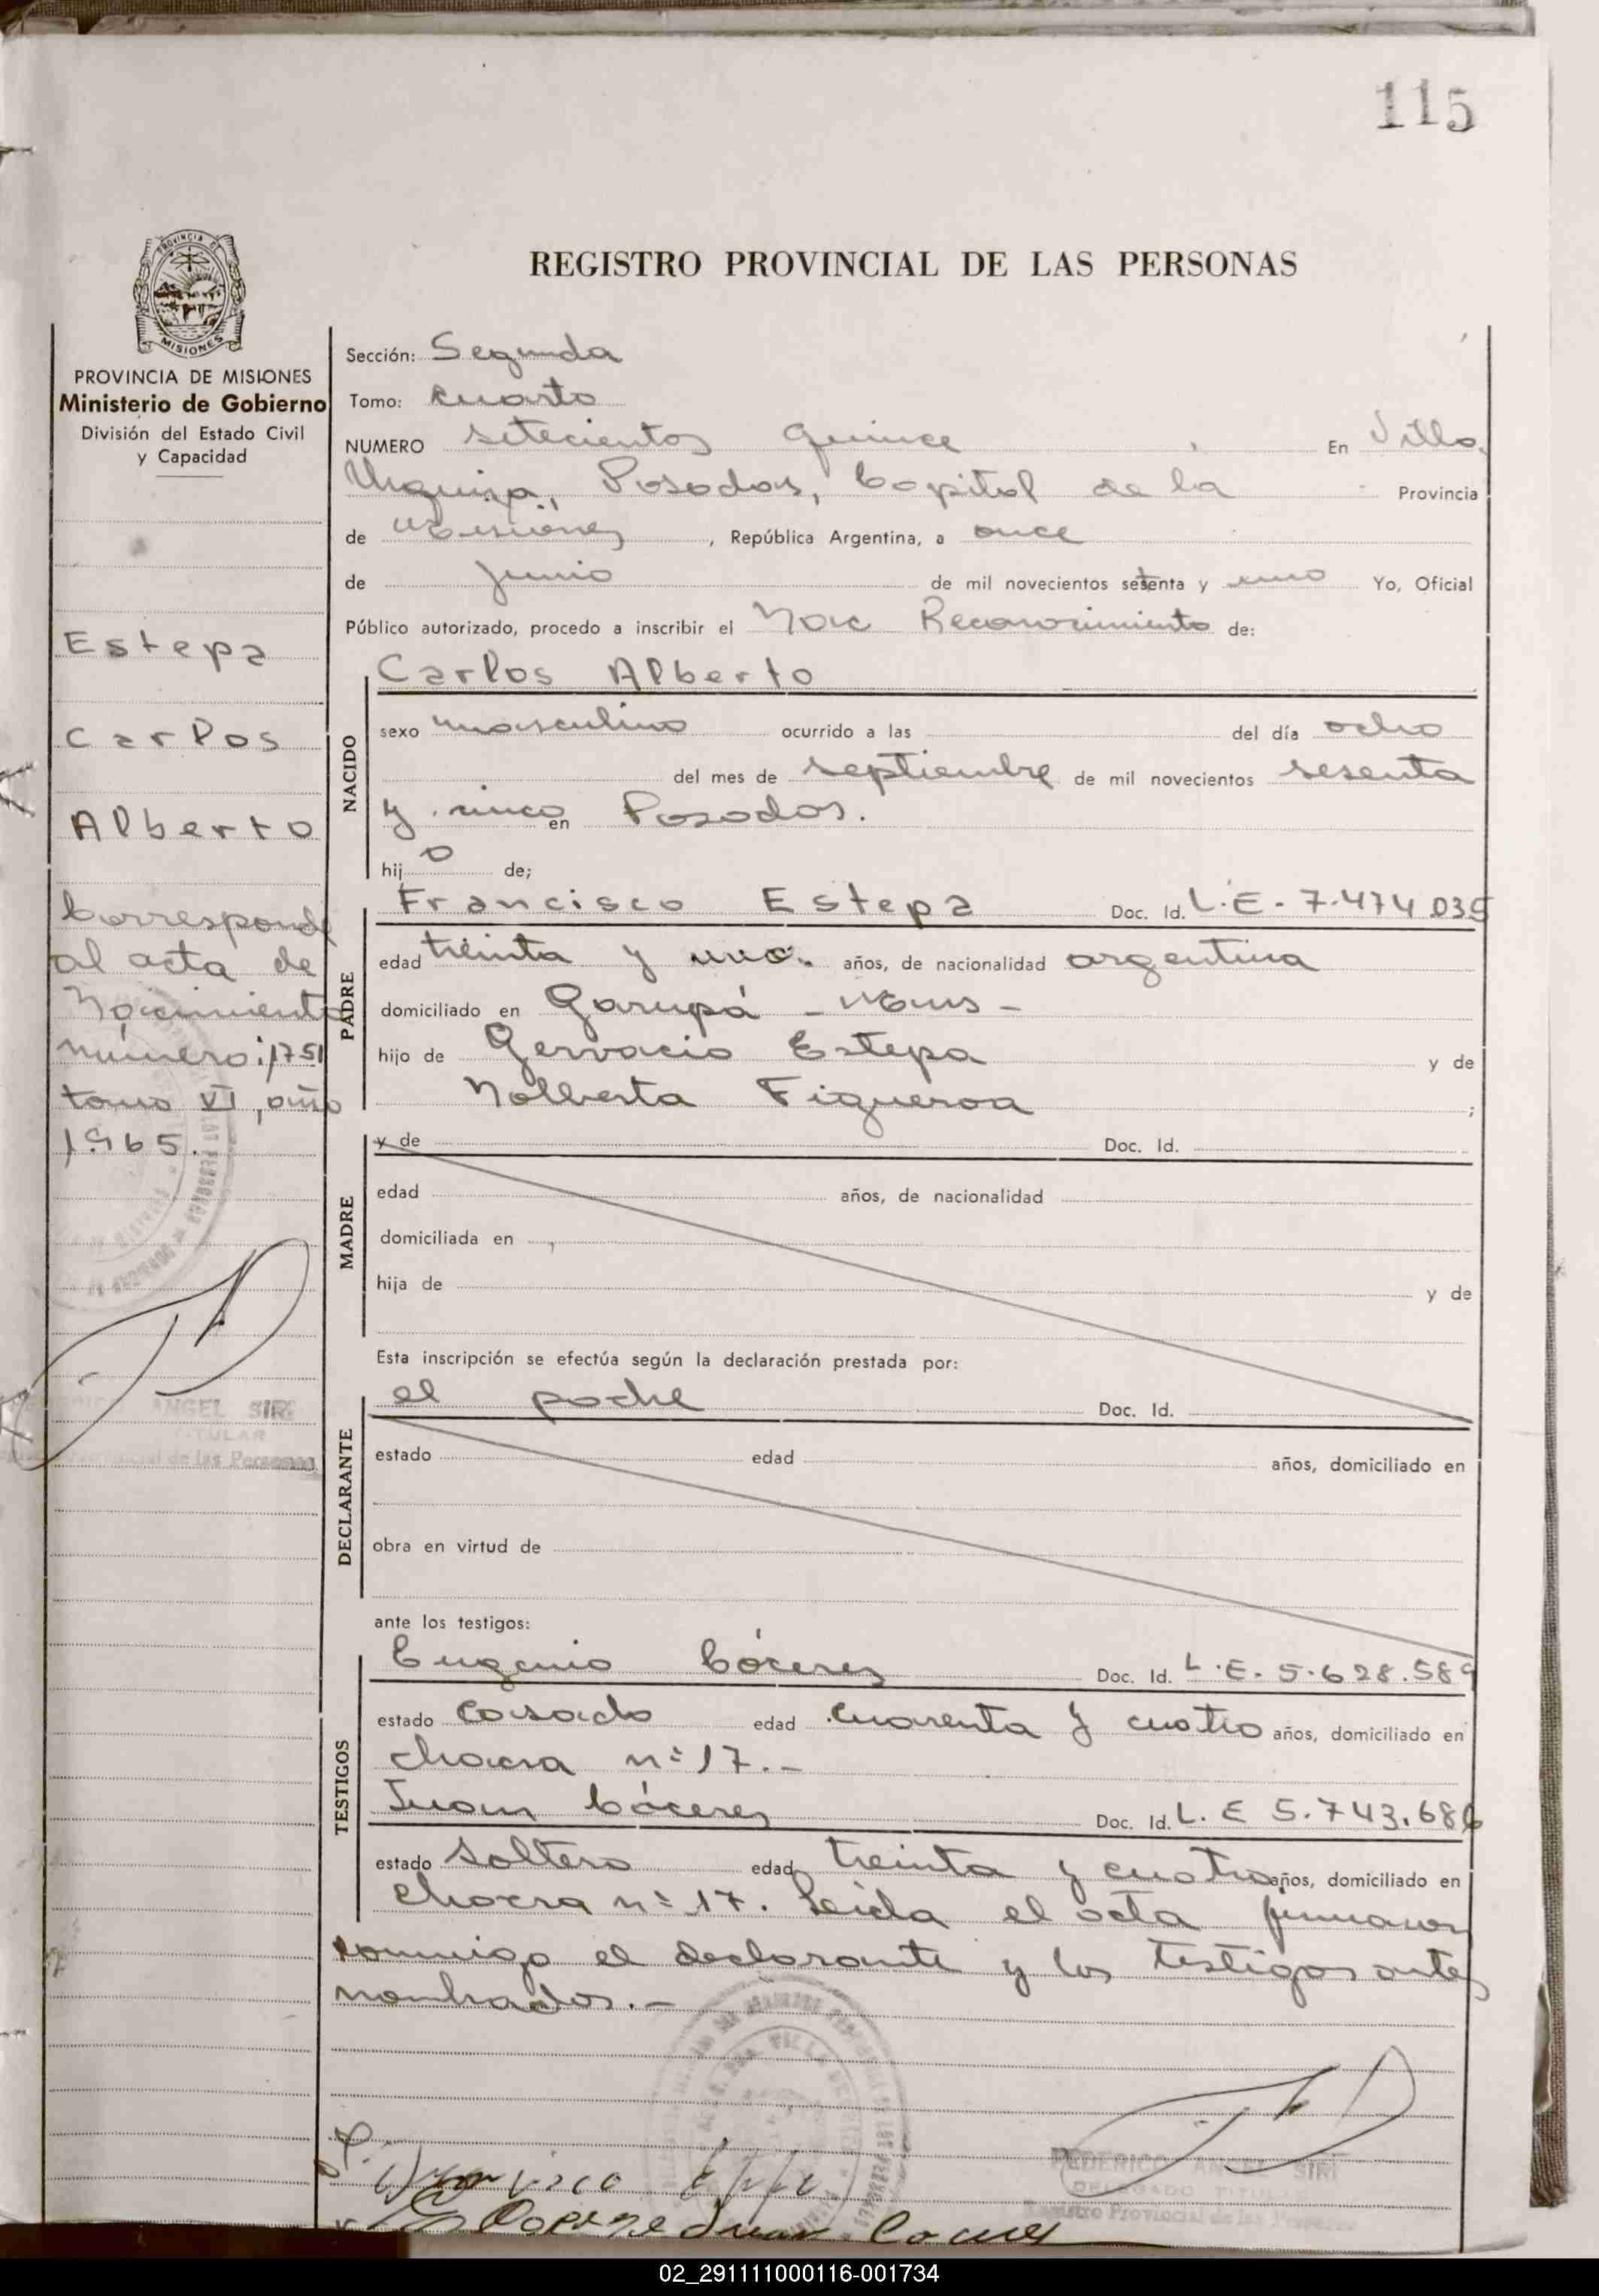 115
REGISTRO PROVINCIAL DE LAS PERSONAS
PROVINCIA DE MISIONES
MISIONES
PROVINCIA DE MISIONES
Ministerio de Gobierno
División del Estado Civil
y Capacidad
Estepa
Carlos
Alberto
Corresponde
al acta de
Nacimiento
número: 1751
tomo VI, año
1965.
ANGEL SIRI
TITULAR
Provincial de las Personas
Sección: Segunda
Tomo: cuarto
NUMERO setecientos quince En Villa
Urquiza, Posadas, Capital de la Provincia
de Misiones, República Argentina, a once
de junio de mil novecientos setenta y uno Yo, Oficial
Público autorizado, procedo a inscribir el Nac Reconocimiento de:
Carlos Alberto
NACIDO
sexo masculino ocurrido a las del día ocho
del mes de septiembre de mil novecientos sesenta
y cinco en Posadas.
hijo de;
PADRE
Francisco Estepa Doc. Id. L.E. 7.474.035
edad treinta y uno. años, de nacionalidad argentina
domiciliado en Garupá - Mnes -
hijo de Gervacio Estepa y de
Nolberta Figueroa ;
MADRE
y de Doc. Id.
edad años, de nacionalidad
domiciliada en
hija de y de
Esta inscripción se efectúa según la declaración prestada por:
DECLARANTE
el padre Doc. Id.
estado edad años, domiciliado en
obra en virtud de
ante los testigos:
TESTIGOS
Eugenio Cáceres Doc. Id. L.E. 5.628.589
estado casado edad cuarenta y cuatro años, domiciliado en
chacra nº 17.-
Juan Cáceres Doc. Id. L.E 5.743.686
estado soltero edad treinta y cuatro años, domiciliado en
chacra nº 17. Leída el acta firman
conmigo el declarante y los testigos antes
nombrados.-
FEDERICO ANGEL SIRI
DELEGADO TITULAR
Registro Provincial de las Personas
Juan Caceres
02_291111000116-001734